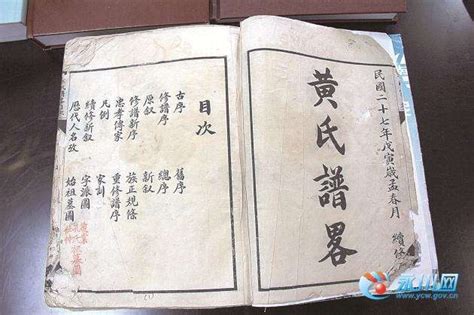 民國二十七年戊寅歲孟春月 續修
黃氏譜畧
目次
古序 舊序
修譜序 總序
原叙 新叙
修譜新序 族正規條
忠孝傳家 重修譜序
凡例 家訓
續修新叙 字派圖
歷代人名攷 始祖墓圖
永州网
www.ycw.gov.cn